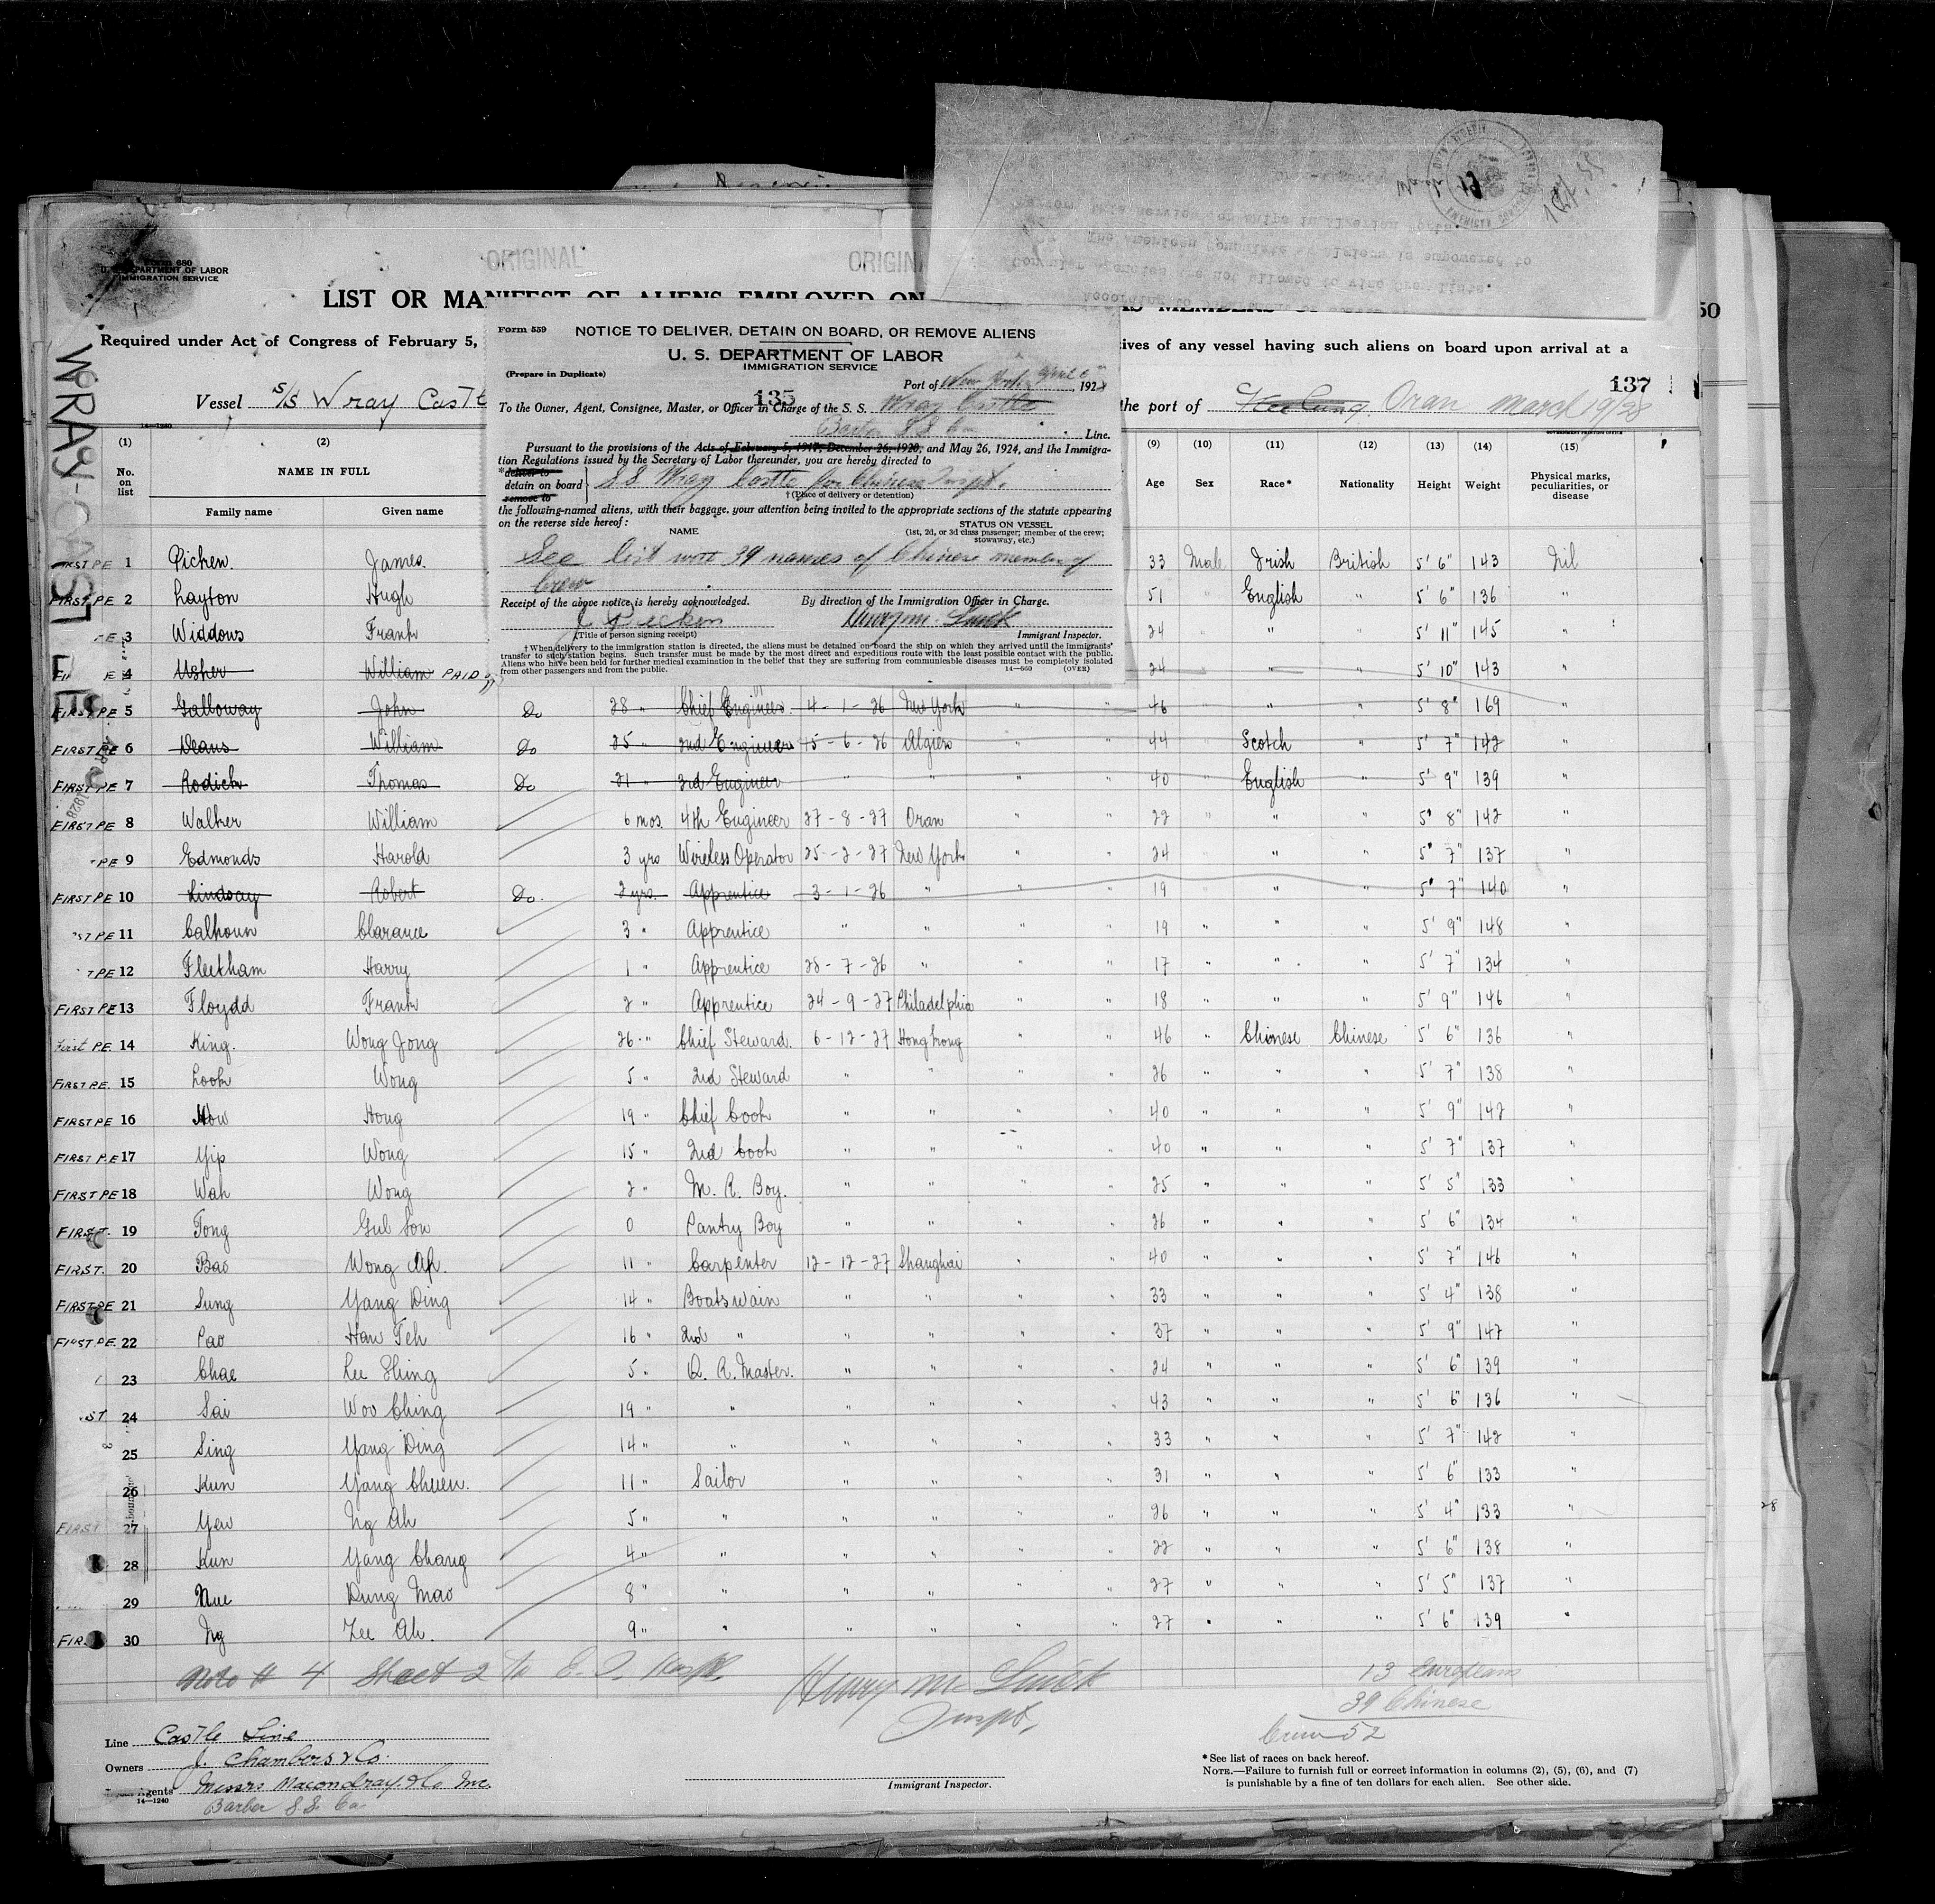 Form 680
U. S. DEPARTMENT OF LABOR
IMMIGRATION SERVICE
ORIGINAL
LIST OR MANIFEST OF ALIENS EMPLOYED ON
AS MEMBERS OF
50
Required under Act of Congress of February 5,
tives of any vessel having such aliens on board upon arrival at a
137
Vessel S/S Wray Castle
the port of Keelung Oran March 19/28
WRAY-CASTLE
According to
Consular Agencies are not allowed to visa crew lists.
The American Consulate at Algiers is empowered to
perform this service for ships in Algerian ports.
Form 559
NOTICE TO DELIVER, DETAIN ON BOARD, OR REMOVE ALIENS
U. S. DEPARTMENT OF LABOR
IMMIGRATION SERVICE
(Prepare in Duplicate)
135
Port of New York April 6th, 1928
To the Owner, Agent, Consignee, Master, or Officer in Charge of the S. S. Wray Castle
Barber S S Co Line.
Pursuant to the provisions of the Acts of February 5, 1917, December 26, 1920, and May 26, 1924, and the Immigra-
tion Regulations issued by the Secretary of Labor thereunder, you are hereby directed to
*deliver to
detain on board SS Wray Castle for Chinese Inspt.
remove to
†(Place of delivery or detention)
the following-named aliens, with their baggage, your attention being invited to the appropriate sections of the statute appearing
on the reverse side hereof:
NAME
STATUS ON VESSEL
(1st, 2d, or 3d class passenger; member of the crew;
stowaway, etc.)
See list 39 names of Chinese member of
Crew
Receipt of the above notice is hereby acknowledged.
By direction of the Immigration Officer in Charge.
J Picken
(Title of person signing receipt)
Immigrant Inspector.
†When delivery to the immigration station is directed, the aliens must be detained on board the ship on which they arrived until the immigrants'
transfer to such station begins. Such transfer must be made by the most direct and expeditious route with the least possible contact with the public.
Aliens who have been held for further medical examination in the belief that they are suffering from communicable diseases must be completely isolated
from other passengers and from the public.
14—660 (OVER)
14-1240
GOVERNMENT PRINTING OFFICE
(1) (2) (9) (10) (11) (12) (13) (14) (15)
No. on list NAME IN FULL Age Sex Race* Nationality Height Weight Physical marks, peculiarities, or disease
Family name Given name
1 Picken. James. 33 Male Irish British 5' 6" 143 Nil
FIRST PE 2 Layton Hugh 51 " English " 5' 6" 136 "
3 Widdows Frank 24 " " " 5' 11" 145 "
4 Usher William PAID 24 " " 5' 10" 143 "
FIRST PE 5 Galloway John Do 28 " Chief Engineer. 4-1-26 New York " " 46 " " 5' 8" 169 "
FIRST PE 6 Deans William Do 25 " 2nd Engineer 15-6-26 Algiers " " 44 Scotch " 5' 7" 142 "
FIRST PE 7 Rodich Thomas Do 21 " 3rd Engineer " " " " 40 English " 5' 9" 139 "
FIRST PE 8 Walker William 6 mos. 4th Engineer 27-8-27 Oran 22 " " " 5' 8" 142 "
PE 9 Edmonds Harold 3 yrs Wireless Operator 25-2-27 New York " " 24 " " 5' 7" 137 "
FIRST PE 10 Lindsay Robert Do. 2 yrs. Apprentice 3-1-26 " " " 19 " " 5' 7" 140 "
ST PE 11 Calhoun Clarance 3 " Apprentice " " " " 19 " " " 5' 9" 148 "
T PE 12 Fleetham Harry 1 " Apprentice 28-7-26 " " " 17 " " " 5' 7" 134 "
FIRST PE 13 Floydd Frank 2 " Apprentice 24-9-27 Philadelphia " " 18 " " " 5' 9" 146 "
First PE. 14 King. Wong Jong 26 " Chief Steward. 6-12-27 Hong Kong " " 46 " Chinese Chinese 5' 6" 136 "
FIRST PE. 15 Look Wong 5 " 2nd Steward " " " " 26 " " " 5' 7" 138 "
FIRST PE 16 How Hong 19 " Chief Cook " " " " 40 " " " 5' 9" 142 "
FIRST PE 17 Yip Wong 15 " 2nd Cook " " " " 40 " " " 5' 7" 137 "
FIRST PE 18 Wah Wong 2 " M. R. Boy. " " " " 25 " " " 5' 5" 133 "
FIRST. 19 Tong Gul Son 0 Pantry Boy " " " " 26 " " " 5' 6" 134 "
FIRST. 20 Bao Wong Ah. 11 " Carpenter 12-12-27 Shanghai " " 40 " " " 5' 7" 146 "
FIRST PE 21 Sung Yang Ding 14 " Boatswain " " " " 33 " " " 5' 4" 138 "
FIRST PE. 22 Pao Han Teh 16 " 2nd " " " " " 37 " " " 5' 9" 147 "
23 Chae Lee Shing 5 " Q. R. Master. " " " " 24 " " " 5' 6" 139 "
ST 24 Sai Woo Ching 19 " " " " " " 43 " " " 5' 6" 136 "
25 Sing Yang Ding 14 " " " " " " 33 " " " 5' 7" 142 "
26 Kun Yang Chuen. 11 " Sailor " " " " 31 " " " 5' 6" 133 "
FIRST 27 Yew Ng Ah 5 " " " " " " 26 " " " 5' 4" 133 "
28 Kun Yang Chang 4 " " " " " " 22 " " " 5' 6" 138 "
29 Nue Dung Mao 8 " " " " " " 27 " " " 5' 5" 137 "
FIRST 30 Ng Zee Ah. 9 " " " " " " 27 " " " 5' 6" 139 "
Note # 4 Sheet 2 to E. I. Hosp.
13 Europeans
39 Chinese
Crew 52
Inspt.
Line Castle Line
Owners J. Chambers & Co.
Agents Messrs Macondray & Co Inc.
14—1240
Barber S S Co
Immigrant Inspector.
*See list of races on back hereof.
NOTE.—Failure to furnish full or correct information in columns (2), (5), (6), and (7)
is punishable by a fine of ten dollars for each alien. See other side.